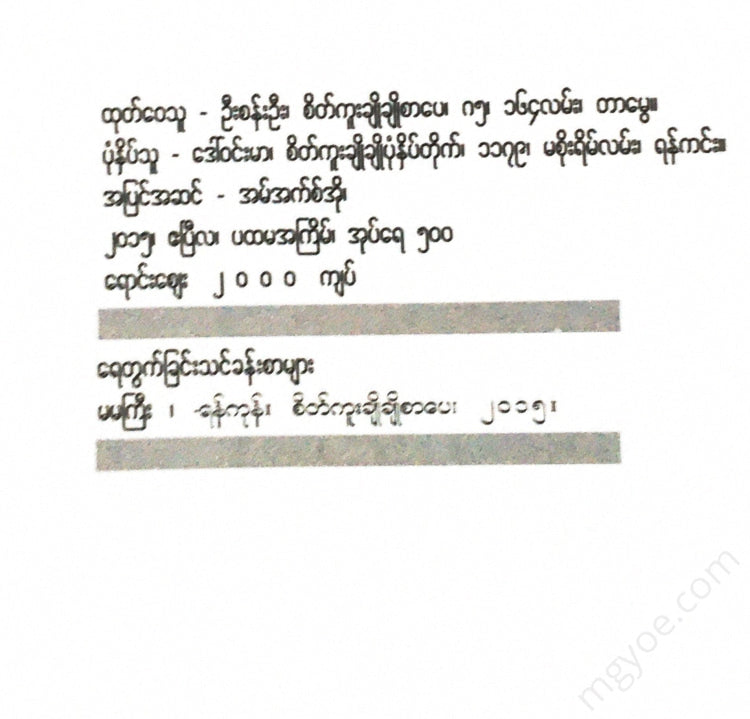 ထုတ်ဝေသူ - ဦးစန်းဦး၊ စိတ်ကူးချိုချိုစာပေ၊ ဂ၅၊ ၁၆၄လမ်း၊ တာမွေ။
ပုံနှိပ်သူ - ဒေါ်ဝင်းမာ၊ စိတ်ကူးချိုချိုပုံနှိပ်တိုက်၊ ၁၁၇၉၊ မစိုးရိမ်လမ်း၊ ရန်ကင်း။
အပြင်အဆင် - အမ်အက်စ်အို၊
၂၀၁၅၊ ဧပြီလ၊ ပထမအကြိမ်၊ အုပ်ရေ ၅၀၀
ရောင်းဈေး ၂၀၀၀ ကျပ်
ရေတွက်ခြင်းသင်ခန်းစာများ
မမကြီး ၊ -ရန်ကုန်၊ စိတ်ကူးချိုချိုစာပေ၊ ၂၀၁၅၊
mgyoe.com